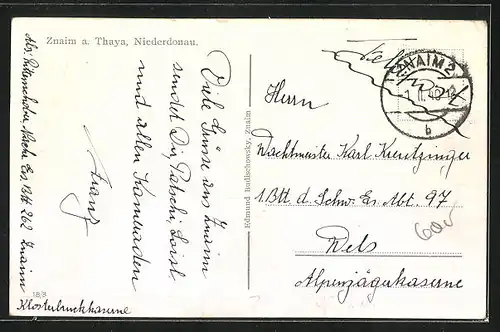 Znaim a. Thaya, Niederdonau.
Viele Grüsse aus Znaim
sendet Dir, Patschi, Loisl
und allen Kameraden
Franz
Ers. Btt 262 Znaim
Klosterbruckkaserne
18/3
Edmund Rudischowsky, Znaim
Feldpost
ZNAIM 2
b
Herrn
Wachtmeister Karl Kreutzinger
1. Btt d. Schw. Es. Abt. 97
Wels
Alpenjägerkaserne